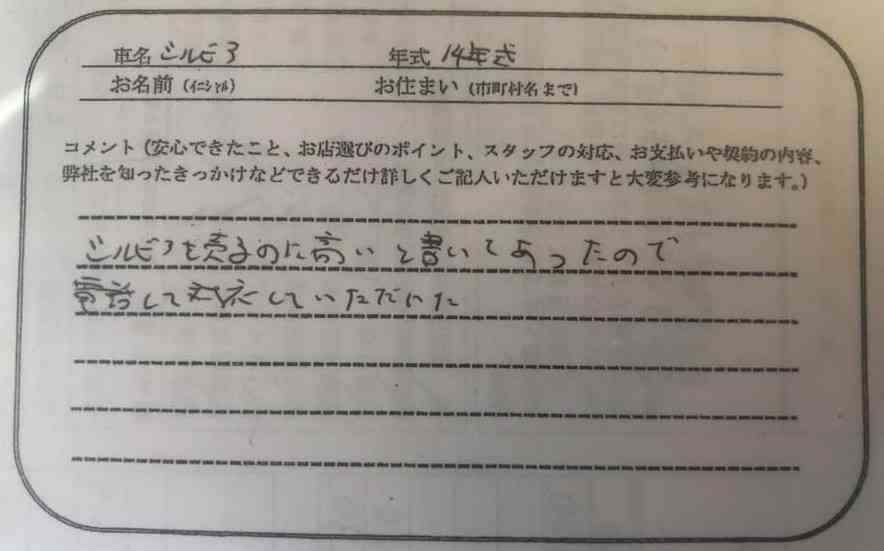 車名 シルビア 年式 14年式
お名前 (イニシャル) お住まい (市町村名まで)
コメント (安心できたこと、お店選びのポイント、スタッフの対応、お支払いや契約の内容、
弊社を知ったきっかけなどできるだけ詳しくご記入いただけますと大変参考になります。)
シルビアを売るのに高いと書いてあったので
電話して対応していただいた